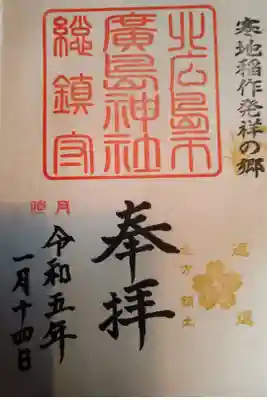 寒地稲作発祥の郷
北広島市
廣島神社
総鎮守
奉拝
北方領土
返還
令和五年
一月十四日